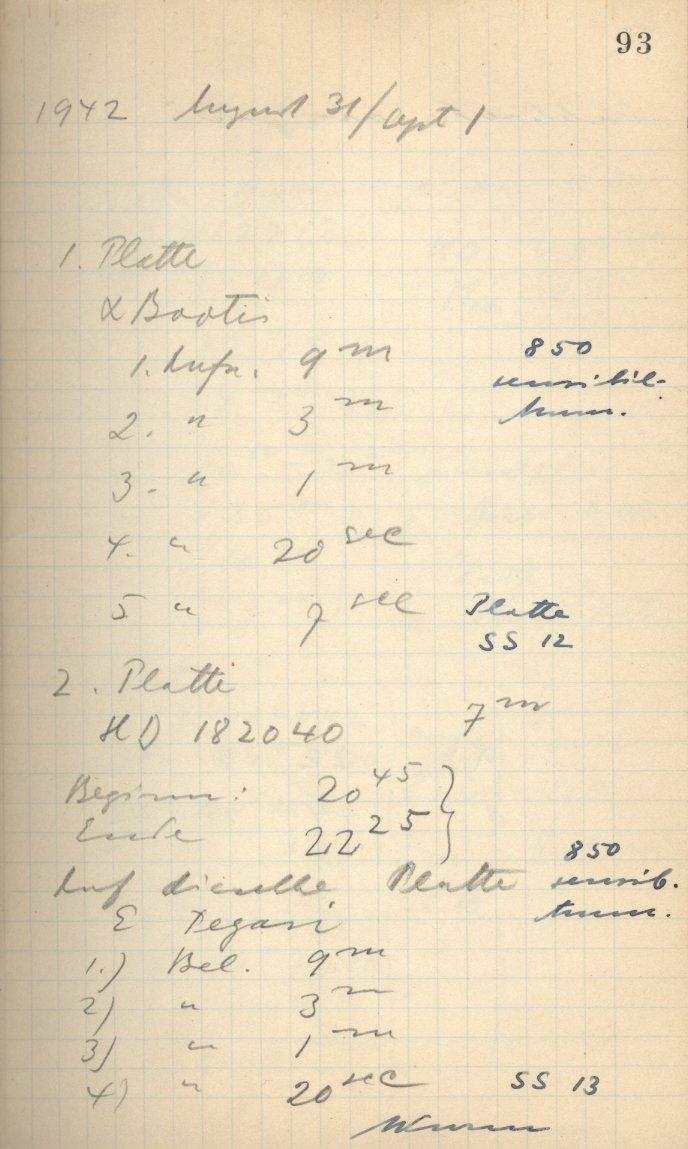 93
1942 August 31/Sept 1
1. Platte
α Bootis
1. Aufn. 9 m
850
sensibil-
2. " 3 m
3. " 1 m
4. " 20 sec
5 " 7 sec
Platte
SS 12
2. Platte
HD 182040 7 m
Beginn: 20 45
Ende 22 25
Auf dieselbe Platte
850
sensib.
ε Pegasi
1.) Bel. 9 m
2) " 3 m
3) " 1 m
4) " 20 sec
SS 13